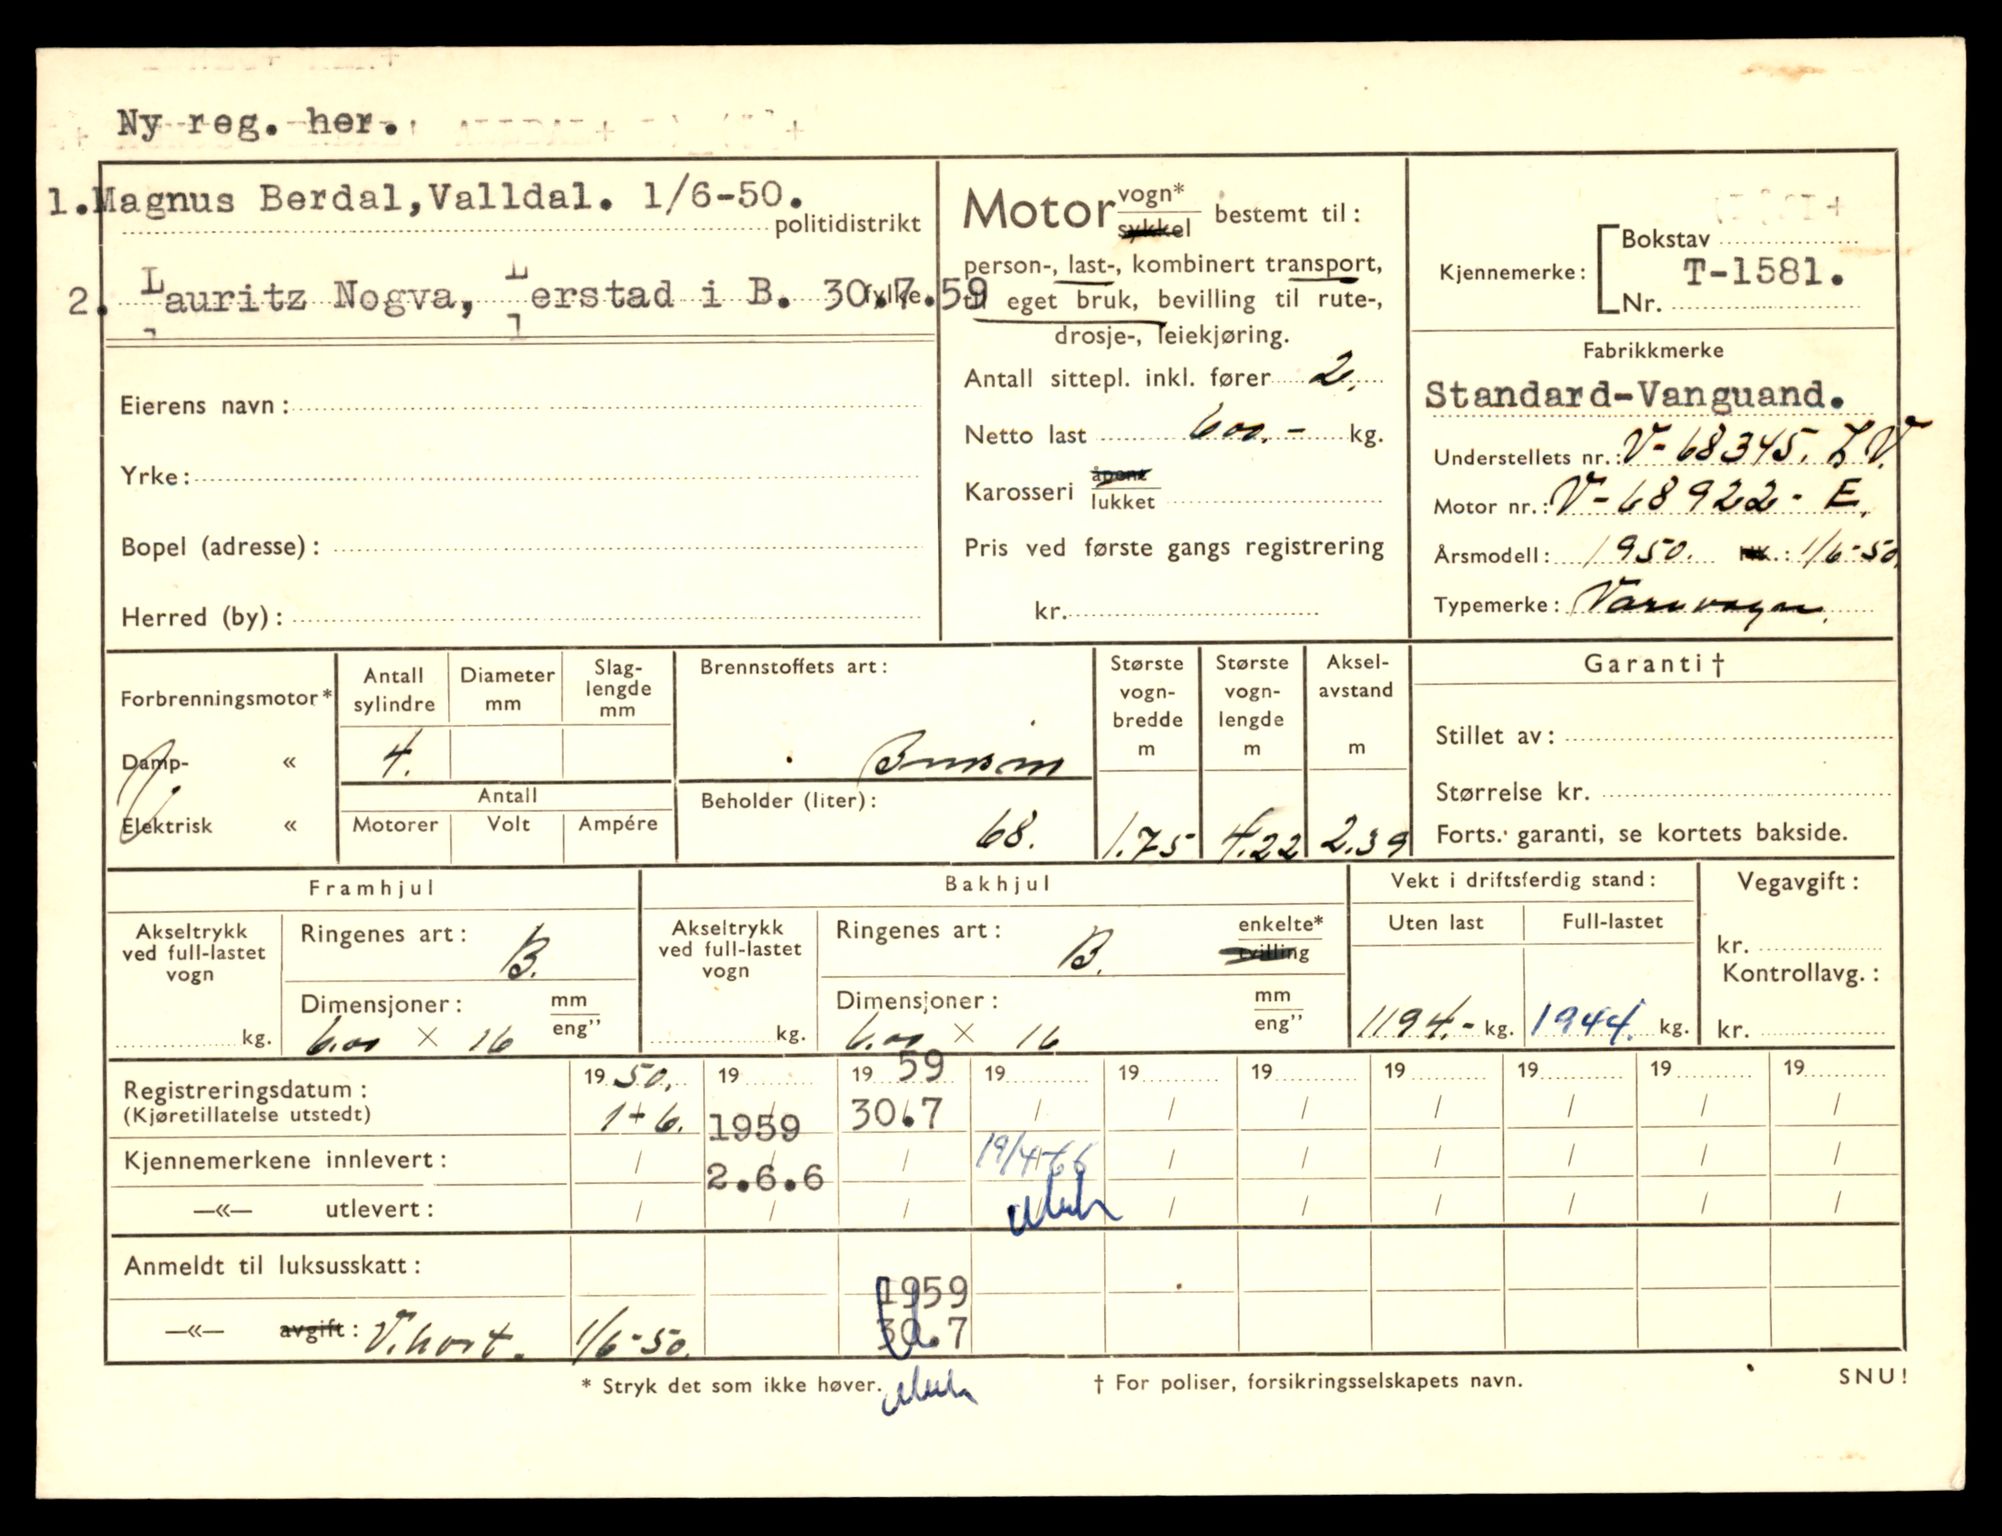 Ny reg. her.
1.Magnus Berdal,Valldal. 1/6-50.
politidistrikt
2. Lauritz Nogva, Lerstad i B. 30.7.59
fylke
Eierens navn:
Yrke:
Bopel (adresse):
Herred (by):
Motor vogn*
sykkel
bestemt til:
person-, last-, kombinert transport,
til eget bruk, bevilling til rute-,
drosje-, leiekjøring.
Antall sittepl. inkl. fører 2.
Netto last 600.- kg.
Karosseri åpent
lukket
Pris ved første gangs registrering
kr.
Kjennemerke:
Bokstav
T-1581.
Nr.
Fabrikkmerke
Standard-Vanguand.
Understellets nr.: V-68345. L V.
Motor nr.: V-68922-E.
Årsmodell: 1950. 1/6-50.
Typemerke: Varevogn.
Forbrenningsmotor*
Damp- «
Elektrisk «
Antall sylindre
4.
Diameter mm
Slag-
lengde
mm
Antall
Motorer Volt Ampére
Brennstoffets art:
Bensin
Beholder (liter):
68.
Største
vogn-
bredde
m
1.75
Største
vogn-
lengde
m
4.22
Aksel-
avstand
m
2.39
Garanti†
Stillet av:
Størrelse kr.
Forts. garanti, se kortets bakside.
Framhjul
Akseltrykk
ved full-lastet
vogn
kg.
Ringenes art: B.
Dimensjoner: mm
eng"
6.00 × 16
Bakhjul
Akseltrykk
ved full-lastet
vogn
kg.
Ringenes art: B.
enkelte*
tvilling
Dimensjoner: mm
eng"
6.00 × 16
Vekt i driftsferdig stand:
Uten last Full-lastet
1194.- kg. 1944. kg.
Vegavgift:
kr.
Kontrollavg.:
kr.
Registreringsdatum: 19 50. 19 19 59 19 19 19 19 19 19 19
(Kjøretillatelse utstedt) 1-6. 1959 30.7 / / / / / / /
Kjennemerkene innlevert: / 2.6.6 / 19/4-66 / / / / / /
—«— utlevert: / / / / / / / / /
Anmeldt til luksusskatt:
1959
—«— avgift: V.kort. 1/6-50. 30.7
* Stryk det som ikke høver.
† For poliser, forsikringsselskapets navn.
SNU!